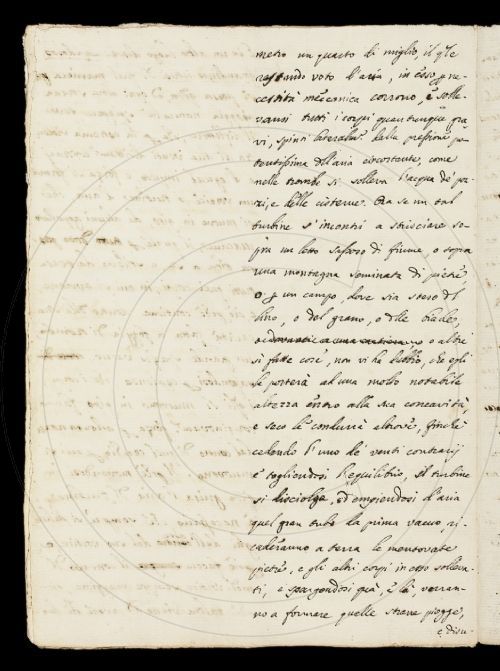 metro un quarto di miglio, il q̃le
restando voto d'aria, in esso ꝑ ne-
cessità meccanica corrono, e solle-
vansi tutti i corpi quantunque gra
vi, spinti lateralm.te dalla pressione po-
tentissima dell'aria circostante, come
nelle trombe si solleva l'acqua de' poz-
zi, e delle cisterne. Ora se un tal
turbine s'incontri a strisciare so-
pra un letto sassoso di fiume o sopra
una montagna seminata di pietre,
o ꝑ un campo, dove sia steso del
lino, o del grano, o delle biade,
o altre
si fatte cose, non vi ha dubbio, che egli
le porterà ad una molto notabile
altezza entro alla sua concavità,
e seco le condurrà altrove, finchè
cedendo l'uno de' venti contrarij
e togliendosi l'equilibrio, il turbine
si disciolga, ed empiendosi d'aria
quel gran tubo la prima vacuo, ri-
caderanno a terra le mentovate
pietre, e gli altri corpi in esso solleva-
ti, e spargendosi quà, e là, verran-
no a formare quelle strane piogge,
e dilu-